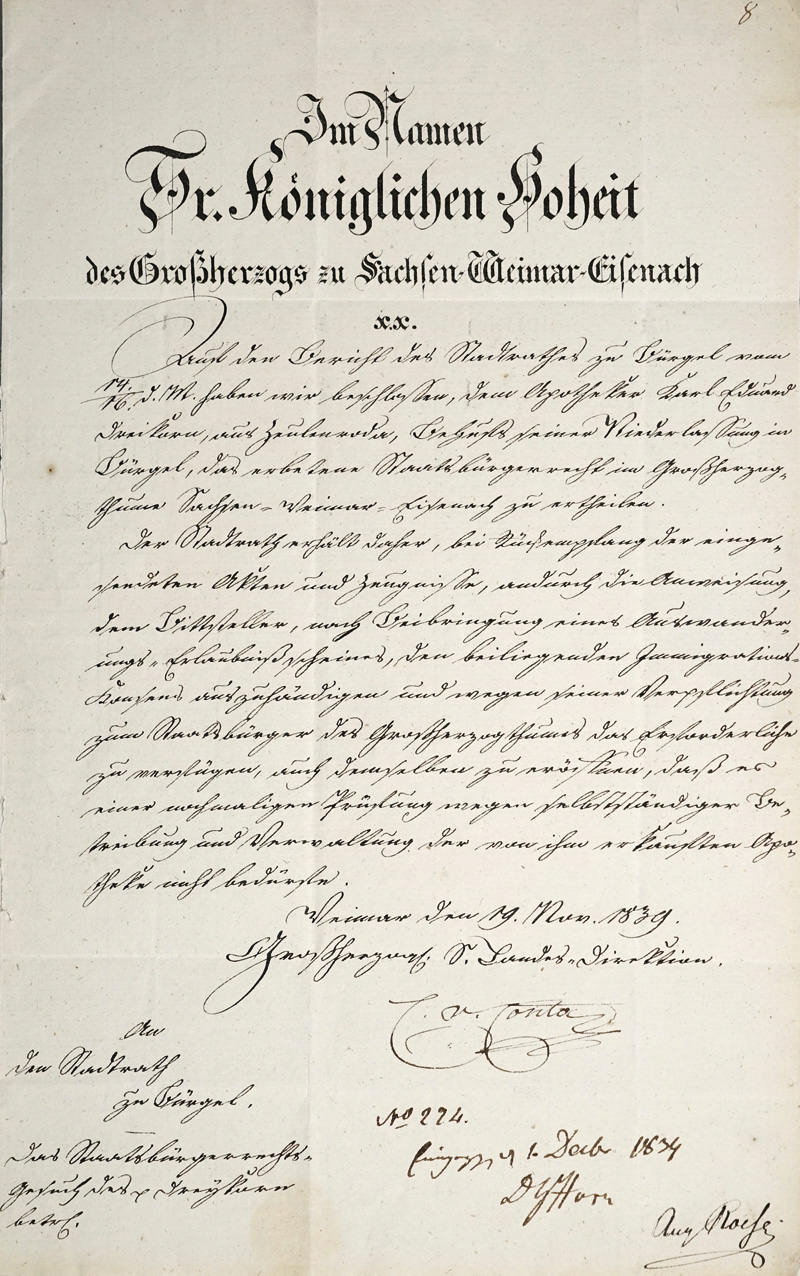 8
Im Namen
Sr. Königlichen Hoheit
des Großherzogs zu Sachsen-Weimar-Eisenach
x.x.
Auf den Bericht des Stadtrathes zu Bürgel vom
14./16. d. M. haben wir beschlossen, dem Apotheker Karl Eduard
Dreikorn, aus Zeulenroda, Behufs seiner Niederlassung in
Bürgel, das erbetene Staatsbürgerrecht im Großherzog-
thume Sachsen-Weimar-Eisenach zu ertheilen.
Der Stadtrath erhält daher, bei Rückempfang der einge-
sendeten Akten und Zeugnisse, andurch die Anweisung,
dem Bittsteller, nach Beibringung eines Auswander-
ungs-Erlaubnißscheines, den beiliegenden Immigrations-
Konsens auszuhändigen und wegen seiner Verpflichtung
zum Staatsbürger des Großherzogthumes das Erforderliche
zu verfügen, auch demselben zu eröffnen, daß es
einer nochmaligen Prüfung wegen selbstständiger Be-
treibung und Verwaltung der von ihm erkauften Apo-
theke nicht bedürfe.
Weimar den 19. Nov. 1839.
Großherzogl. S. Landes-Direktion.
C. v. Conta
An
den Stadtrath
zu Bürgel.
Das Staatsbürgerrechts-
Gesuch des p Dreykorn
betr.
No 224.
1. Decbr 1839
Horn
Aug